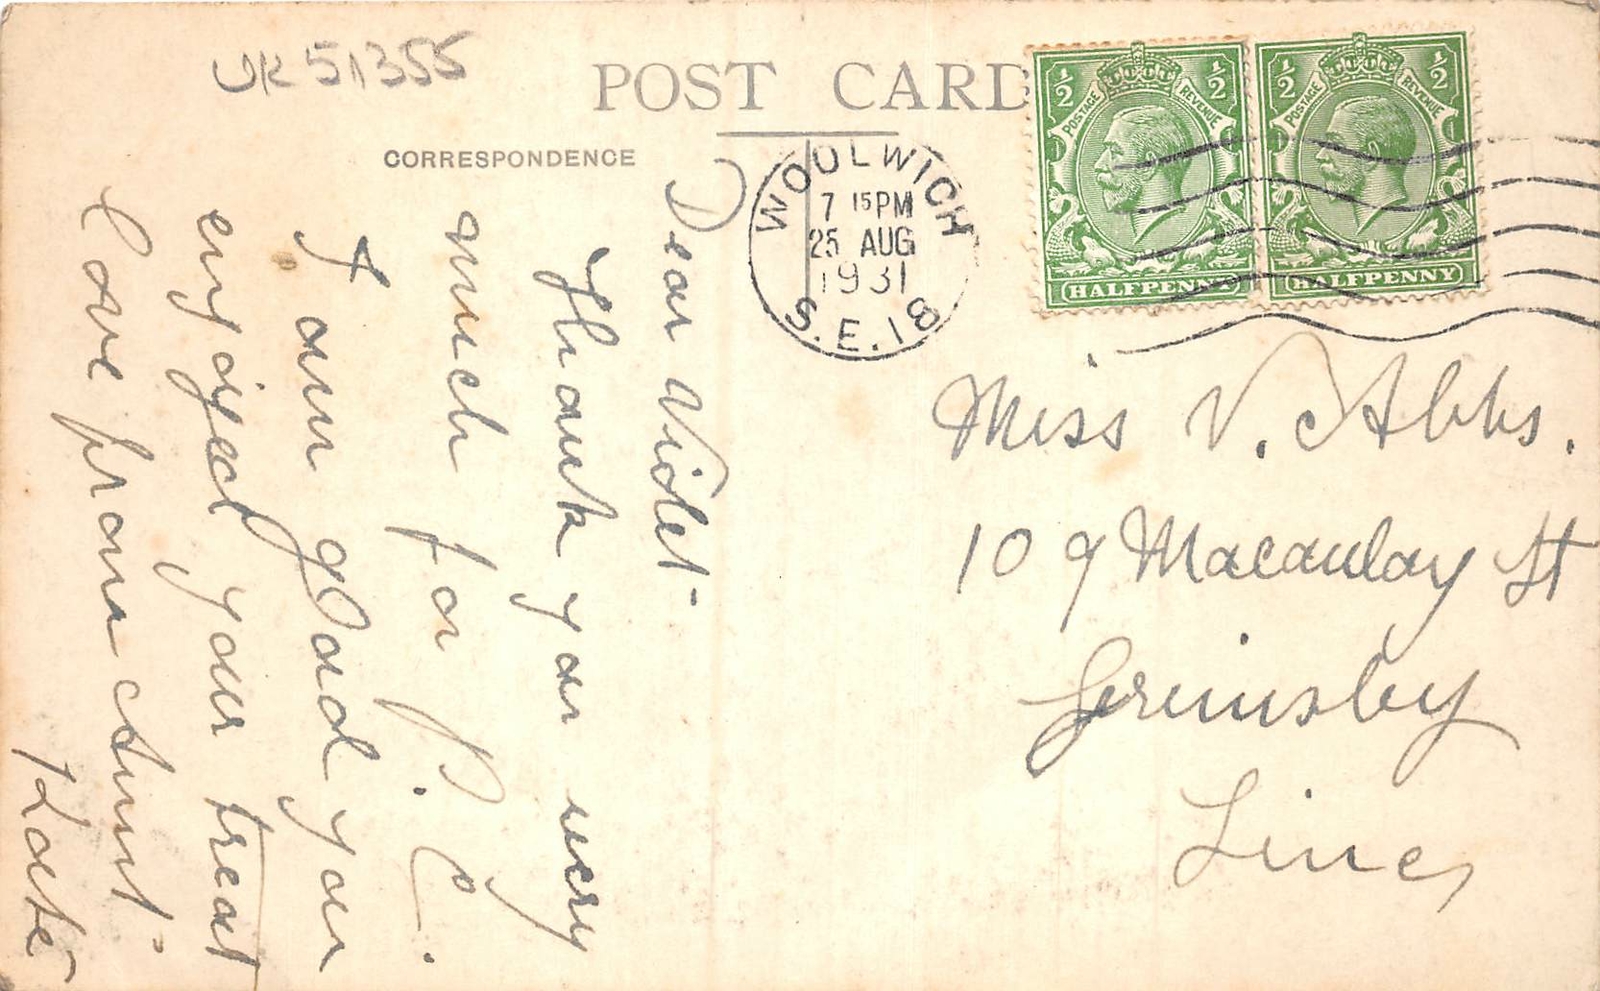 UK51355
POST CARD
CORRESPONDENCE
WOOLWICH
7 15PM
25 AUG
1931
S.E.18
1/2 1/2
POSTAGE REVENUE
HALFPENNY
1/2 1/2
POSTAGE REVENUE
HALFPENNY
Dear Violet
Thank you very
much for P.C.
I am glad you
enjoyed your treat
Love from Aunt
Kate
Miss V. Abbs.
109 Macaulay St
Grimsby
Lincs